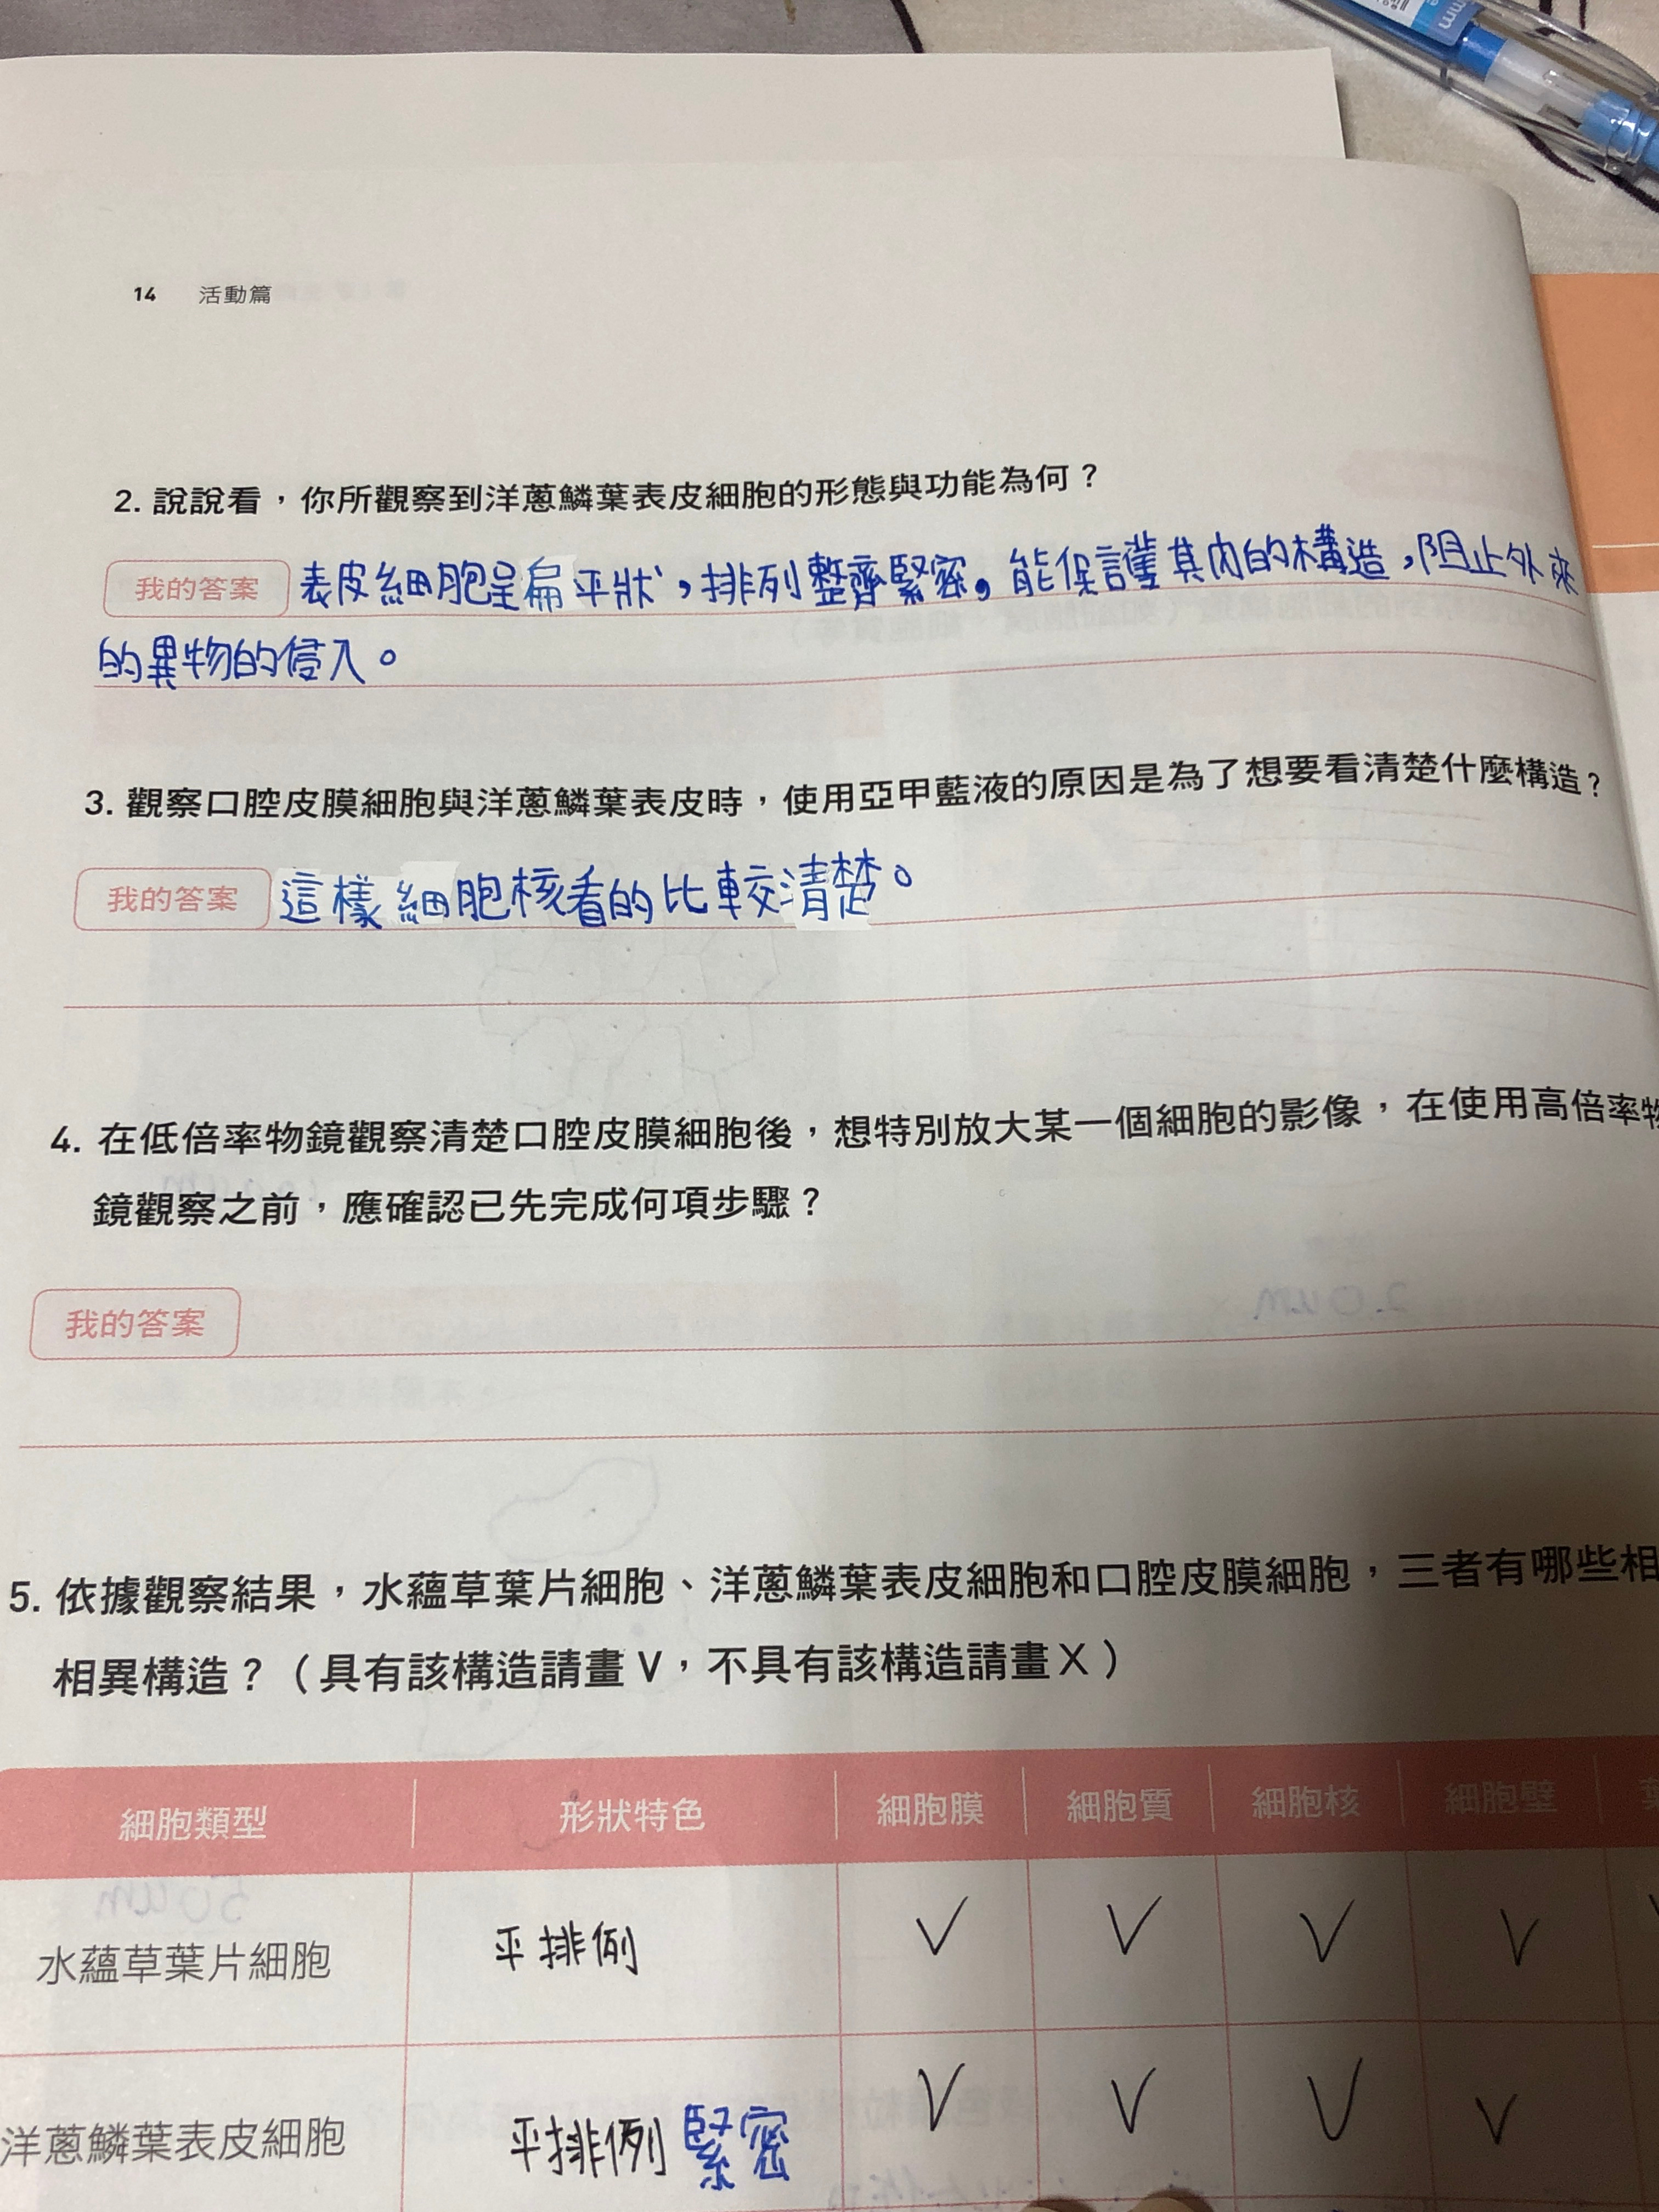 mm
14 活動篇
2. 說說看，你所觀察到洋蔥鱗葉表皮細胞的形態與功能為何？
我的答案 表皮細胞呈扁平狀，排列整齊緊密。能保護其內的構造，阻止外來
的異物的侵入。
3. 觀察口腔皮膜細胞與洋蔥鱗葉表皮時，使用亞甲藍液的原因是為了想要看清楚什麼構造？
我的答案 這樣細胞核看的比較清楚。
4. 在低倍率物鏡觀察清楚口腔皮膜細胞後，想特別放大某一個細胞的影像，在使用高倍率物
鏡觀察之前，應確認已先完成何項步驟？
我的答案
5. 依據觀察結果，水蘊草葉片細胞、洋蔥鱗葉表皮細胞和口腔皮膜細胞，三者有哪些相
相異構造？（具有該構造請畫 V，不具有該構造請畫 X）
細胞類型 形狀特色 細胞膜 細胞質 細胞核 細胞壁
水蘊草葉片細胞 平排例 V V V V
洋蔥鱗葉表皮細胞 平排例 緊密 V V V V